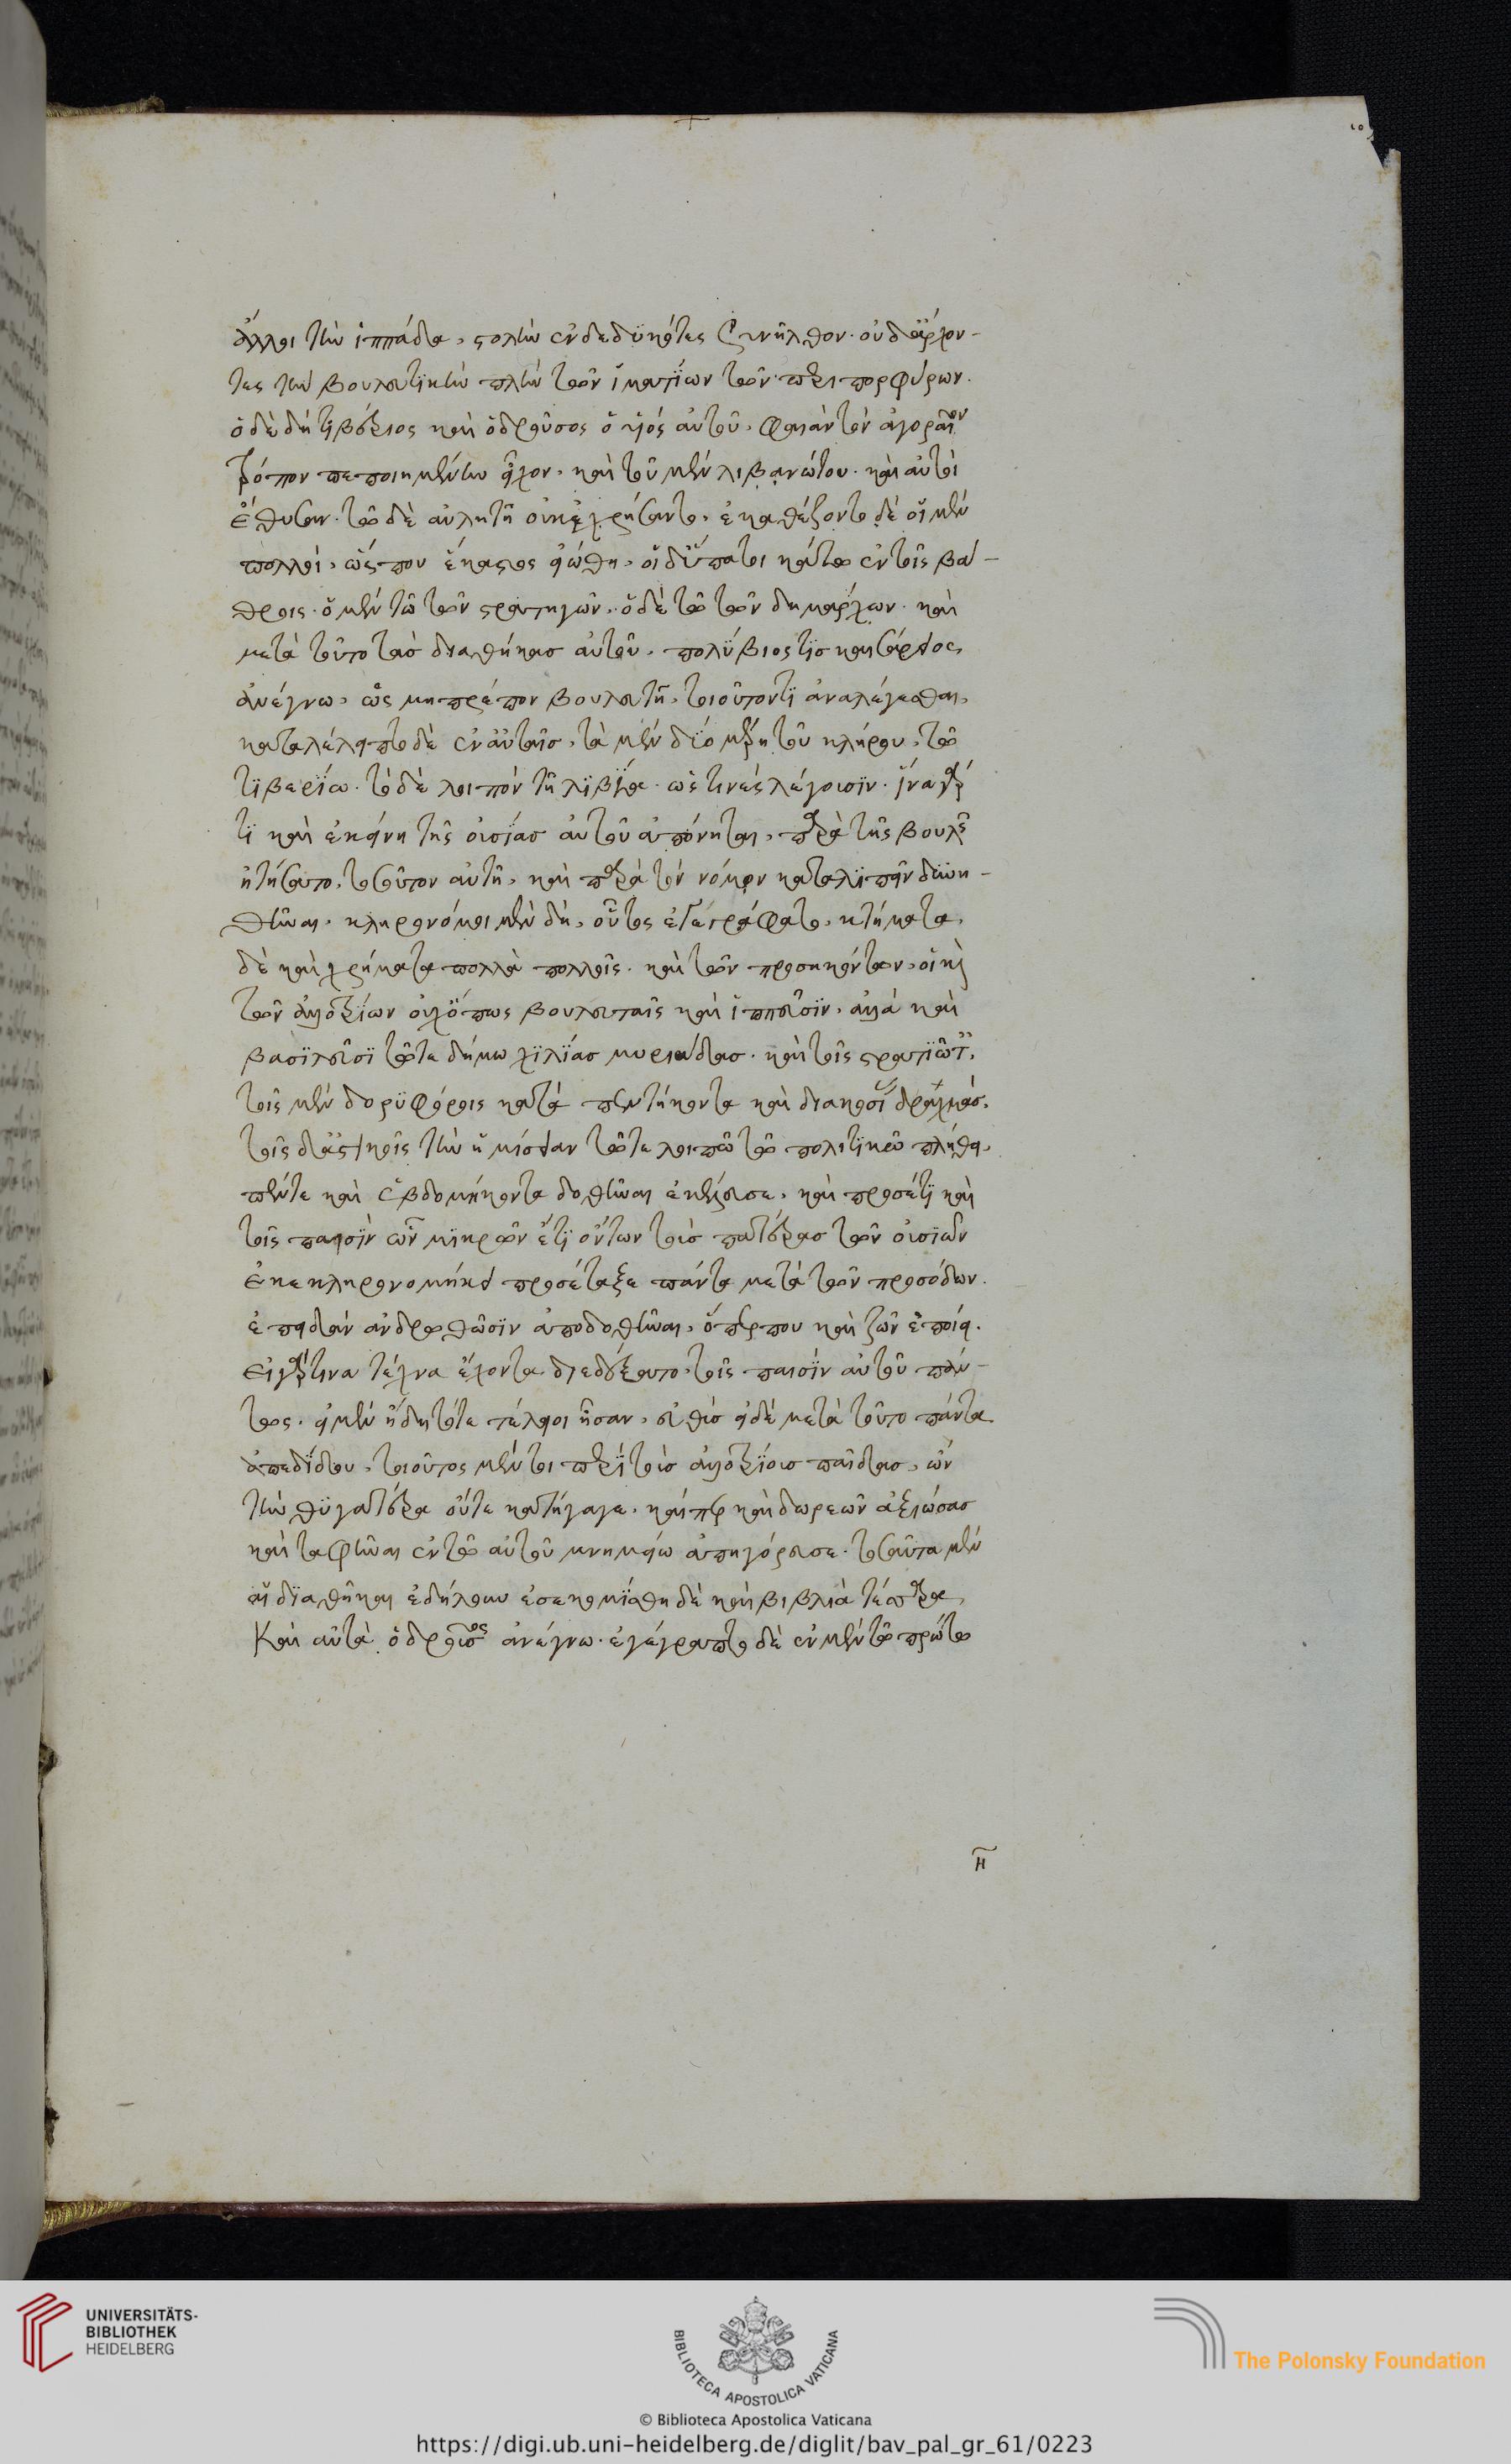 ἄλλοι τὴν ἱππάδα, στολὴν ἐνδεδυκότες συνῆλθον. οἱ δ' ἄρχον-
τες τὴν βουλευτικὴν πλὴν τῶν ἱματίων τῶν περιπορφύρων.
ὁ δὲ δὴ τιβέριος καὶ ὁ δροῦσος ὁ υἱός αὐτοῦ, φαιὰν τὸν ἀγοραῖον
τρόπον πεποιημένην εἶχον, καὶ τοῦ μὲν λιβανωτοῦ. καὶ αὐτοὶ
ἔθυσαν. τῷ δὲ αὐλητῇ οὐκ ἐχρήσαντο, ἐκαθέζοντο δὲ οἱ μὲν
πολλοὶ, ὥς που ἕκαστος εἰώθει, οἱ δ' ὕπατοι κάτω ἐν τοῖς βά-
θροις. ὁ μὲν τῷ τῶν στρατηγῶν, ὁ δὲ τῷ τῶν δημάρχων. καὶ
μετὰ τοῦτο τὰς διαθήκας αὐτοῦ, πολύβιος τὶς καισάρειος,
ἀνέγνω, ὡς μὴ πρέπον βουλευτῇ, τοιοῦτον τὶ ἀναλέγεσθαι,
κατελέλειπτο δὲ ἐν αὐταῖς, τὰ μὲν δύο μέρη τοῦ κλήρου, τῷ
τιβερίῳ. τὸ δὲ λοιπὸν τῇ λιβίᾳ. ὥς τινές λέγουσιν. ἵνα γάρ
τι καὶ ἐκείνη τῆς οὐσίας αὐτοῦ ἀπόνηται, παρὰ τῆς βουλῆς
ᾐτήσατο, τοσοῦτον αὐτῇ, καὶ παρὰ τὸν νόμον καταλιπεῖν δυνη-
θῆναι. κληρονόμοι μὲν δὴ, οὗτοι ἐγεγράφατο, κτήματα,
δὲ καὶ χρήματα πολλὰ πολλοῖς. καὶ τῶν προσηκόντων, οἱ καὶ
τῶν ἀλλοτρίων οὐχ ὅπως βουλευταῖς καὶ ἱππεῦσιν, ἀλλὰ καὶ
βασιλεῦσι τῷ τε δήμῳ χιλίας μυριάδας. καὶ τοῖς στρατιώταις,
τοῖς μὲν δορυφόροις κατὰ πεντήκοντα καὶ διακοσίας δραχμὰς,
τοῖς δ' ἀστικοῖς τὴν ἡμίσειαν τῷ τε λοιπῷ τῷ πολιτικῷ πλήθει,
πέντε καὶ ἑβδομήκοντα δοθῆναι ἐκέλευσε, καὶ προσέτι καὶ
τοῖς παισὶν ὧν μικρῶν ἔτι ὄντων τοὺς πατέρας τῶν οὐσιῶν
ἐκεκληρονομήκει προσέταξε πάντα μετὰ τῶν προσόδων.
ἐπειδὰν ἀνδρωθῶσιν ἀποδοθῆναι, ὅπερ που καὶ ζῶν ἐποίει.
εἰ γάρ τινα τέκνα ἔχοντα διεδέξατο, τοῖς παισὶν αὐτοῦ πάν-
τως. εἰ μὲν ἤδη τότε τέλειοι ἦσαν, εὐθὺς εἰ δὲ μετὰ τοῦτο πάντα
ἀπεδίδου, τοιοῦτος μέντοι περὶ τοὺς ἀλλοτρίους παῖδας, ὢν
τὴν θυγατέρα οὔτε κατήγαγε, καίπερ καὶ δωρεῶν ἀξιώσας
καὶ ταφῆναι ἐν τῷ αὐτοῦ μνημείῳ ἀπηγόρευσε. τοσαῦτα μὲν
αἱ διαθῆκαι ἐδήλουν ἐσεκομίσθη δὲ καὶ βιβλία τέσσαρα,
καὶ αὐτὰ ὁ δροῦσος ἀνέγνω. ἐγέγραπτο δὲ ἐν μὲν τῷ πρώτῳ
η
UNIVERSITÄTS-
BIBLIOTHEK
HEIDELBERG
BIBLIOTECA APOSTOLICA VATICANA
© Biblioteca Apostolica Vaticana
The Polonsky Foundation
https://digi.ub.uni-heidelberg.de/diglit/bav_pal_gr_61/0223